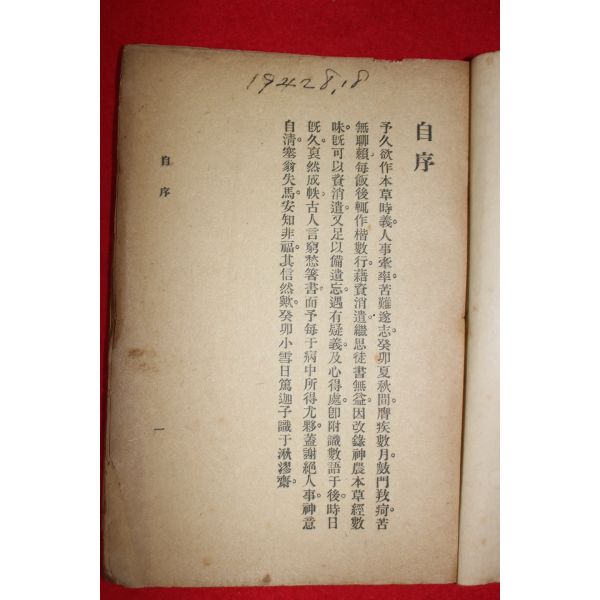 1942 8,18
自序
予久欲作本草時義。人事牽率。苦難遂志。癸卯夏秋間。膺疾數月。鼓門養疴。苦
無聊賴。每飯後輒作楷數行。藉資消遣。繼思徒書無益。因改錄神農本草經數
味。旣可以資消遣。又足以備遺忘。遇有疑義。及心得處。卽附識數語于後。時日
旣久。裒然成帙。古人言窮愁箸書。而予每于病中所得尤夥。蓋謝絕人事。神意
自清。塞翁失馬。安知非福。其信然歟。癸卯小雪日篤迦子識于漻齋。
自序
一